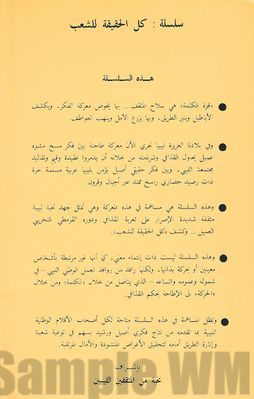 سلسلة : كل الحقيقة للشعب
هذه السلسلة
«قوة الكلمة» هي سلاح المثقف .. بها يخوض معركة الفكر، ويكشف
الأباطيل وينير الطريق، وبها يزرع الأمل ويلهب العواطف.
وفي بلادنا العزيزة ليبيا تجري الآن معركة طاحنة بين فكر مسخ مشوه
عميل يحاول القذافي وشرذمته من خلاله أن يدمروا عقيدة وقيم وتقاليد
مجتمعنا الليبي، وبين فكر حقيق أصيل يؤمن بليبيا عربية مسلمة حرة
ذات رصيد حضاري راسخ ممتد عبر أجيال وقرون.
وهذه السلسلة هي مساهمة في هذه المعركة وهي تمثل جهد نخبة ليبية
مثقفة شديدة الإصرار على تعرية القذافي ودوره القرمطي التخريبي
العميل .. وكشف «كل الحقيقة للشعب».
وهذه السلسلة ليست ذات إنتماء معين، كما أنها غير مرتبطة بأشخاص
معينين أو بحركة بذاتها، ولكنها رافد من روافد العمل الوطني الليبي - في
شموله وعمومه واتساعه - الذي يناضل من خلال «الكلمة» ومن خلال
«الحركة» بل الإطاحة بحكم القذافي.
وتظل المساهمة في هذه السلسلة متاحة لكل أصحاب الأقلام الوطنية
الليبية بما تقدمه من نتاج فكري أصيل ورشيد يسهم في توعية شعبنا
وإنارة الطريق أمامه لتحقيق الأغراض المنشودة والآمال المرتقبة.
بإشراف
نخبة من المثقفين الليبيين
Sample WM